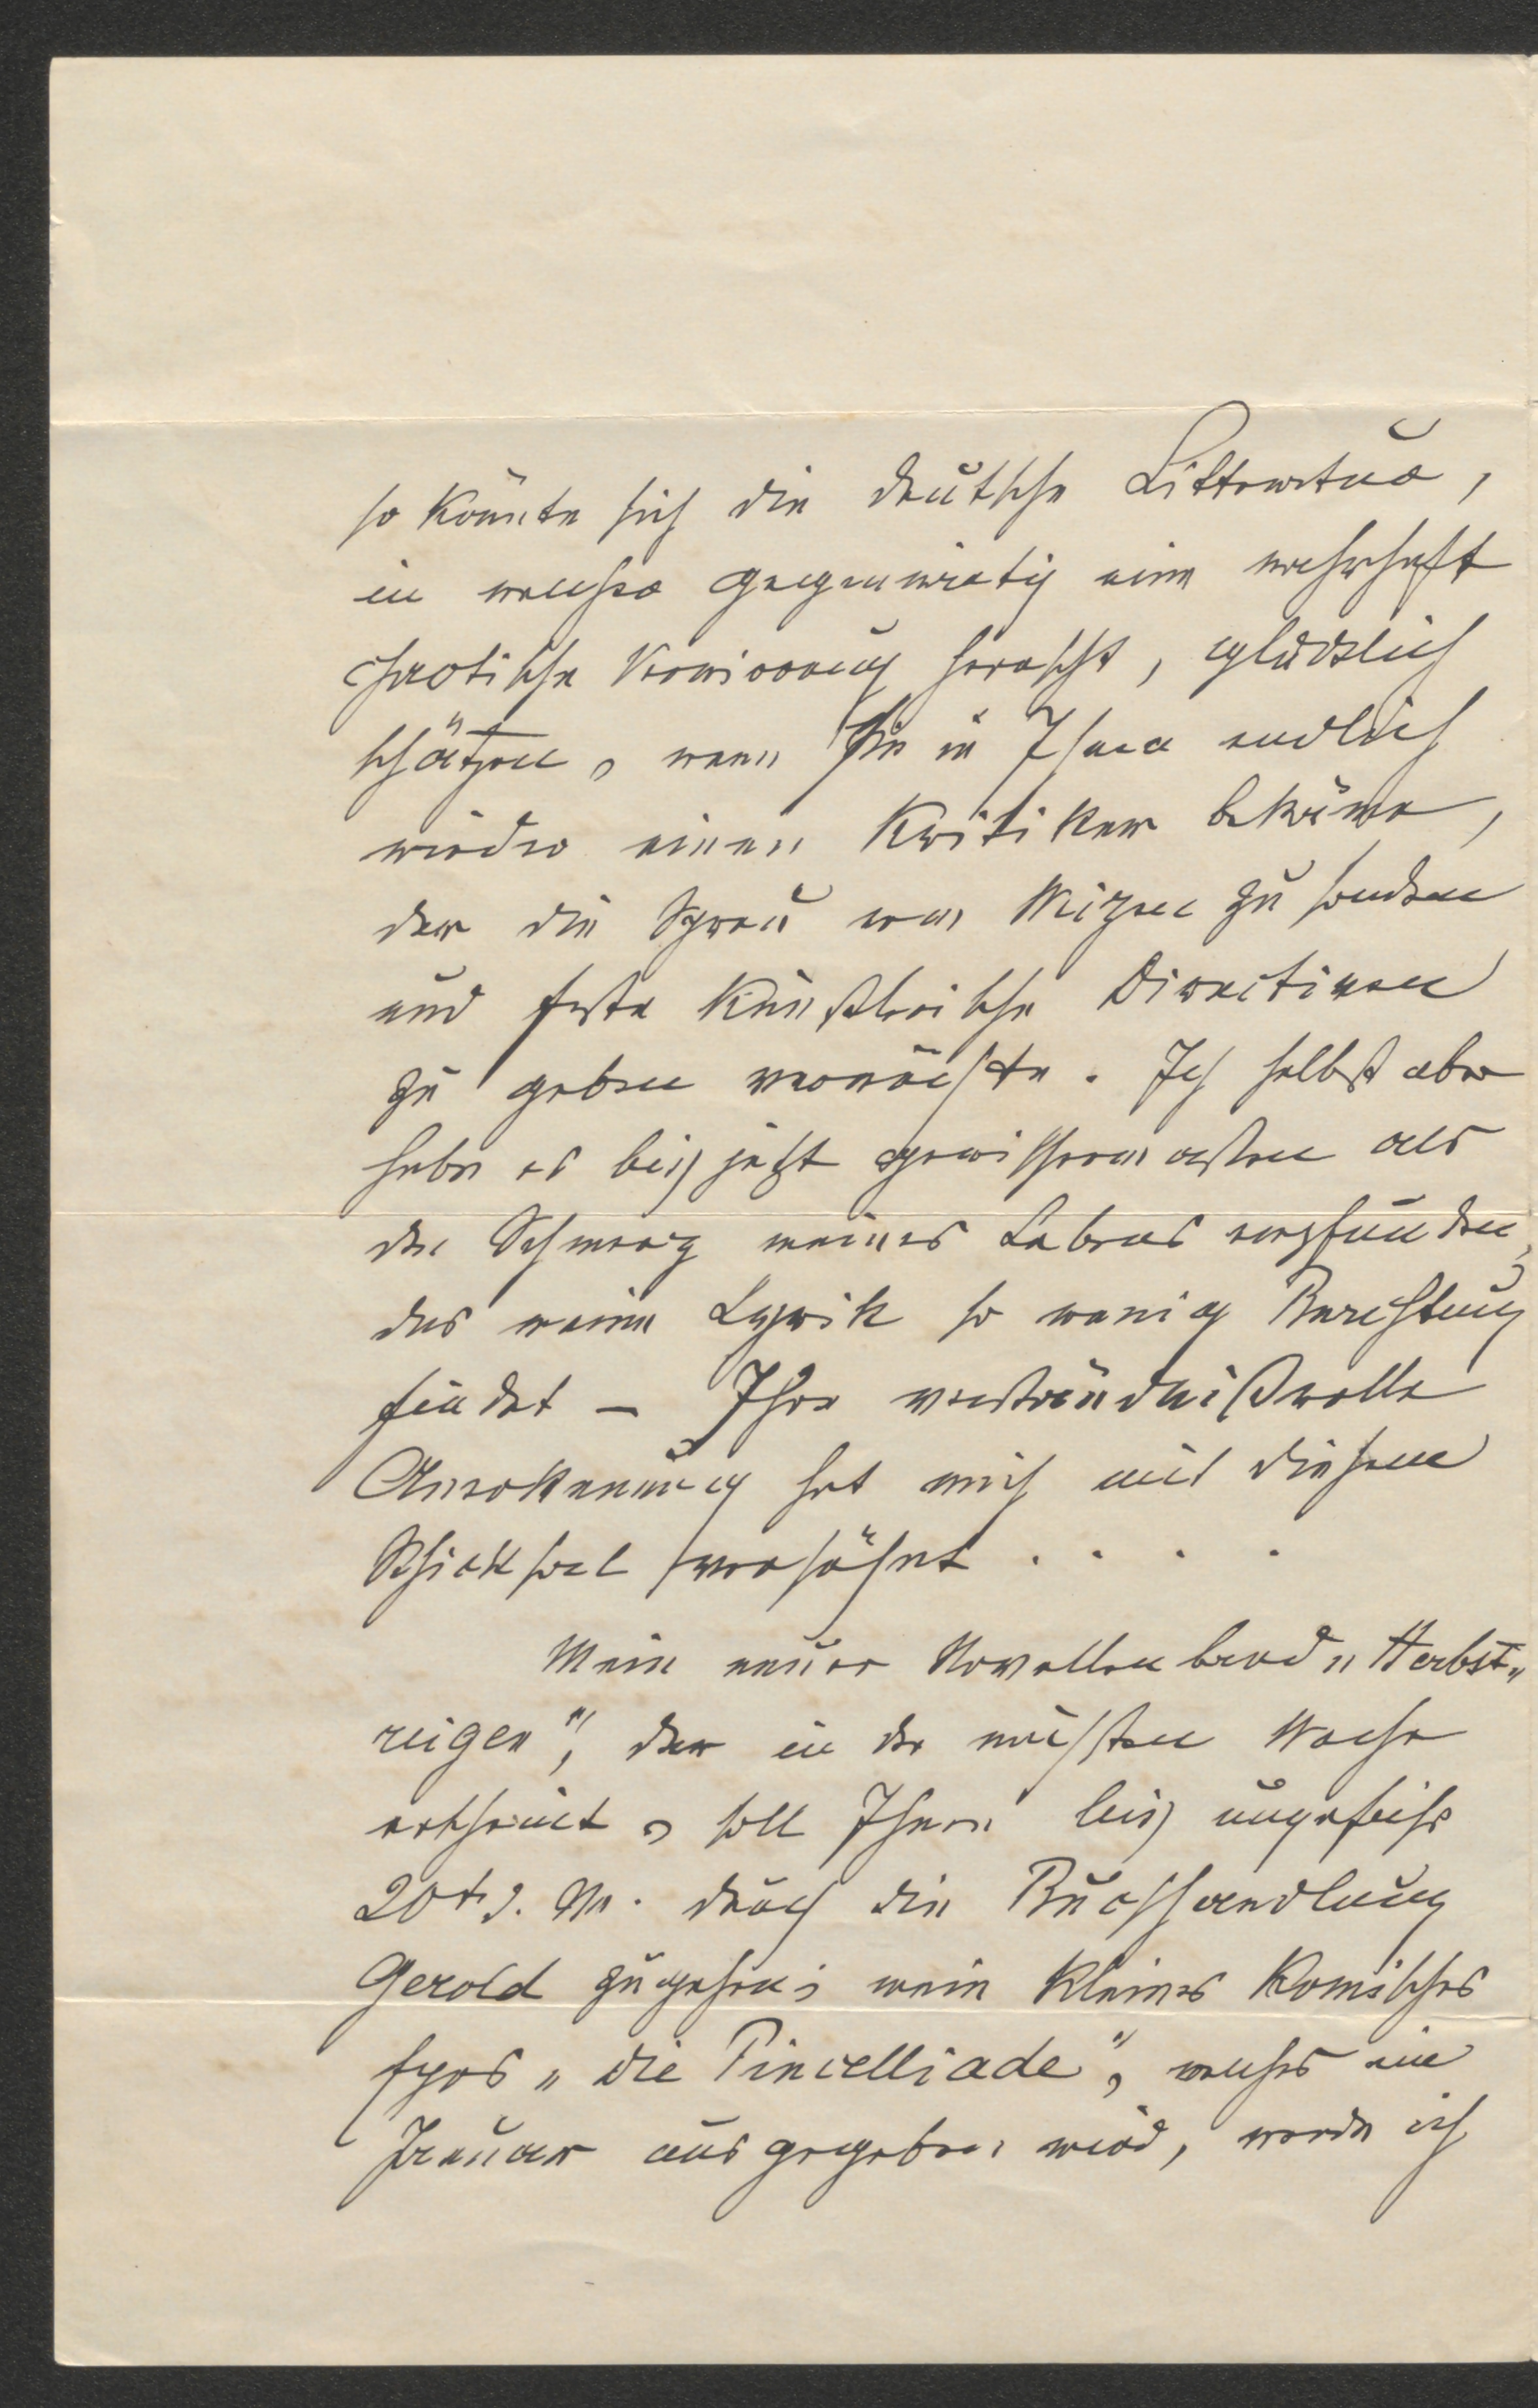 so könnte sich die deutsche Litteratur,
in welcher gegenwärtig eine wahrhaft
chaotische Verwirrung herrscht, glücklich
schätzen, wenn sie in Ihnen endlich
wieder einen Kritiker bekäme,
der die Spreu vom Weizen zu sondern
und feste künstlerische Direktiven
zu geben vermöchte. Ich selbst aber
habe es bis jetzt gewissermaßen als
den Schmerz meines Lebens empfunden,
das meine Lyrik so wenig Beachtung
findet – Ihre verständnißvolle
Anerkennung hat mich mit diesem
Schicksal versöhnt . . . .
Mein neuer Novellenband „Herbst„
reigen“, der in der nächsten Woche
erscheint, soll Ihnen bis ungefähr
20t. d. M. durch die Buchhandlung
Gerold zugehen; mein kleines komisches
Epos „die Pincelliade“, welches im
Januar ausgegeben wird, werde ich